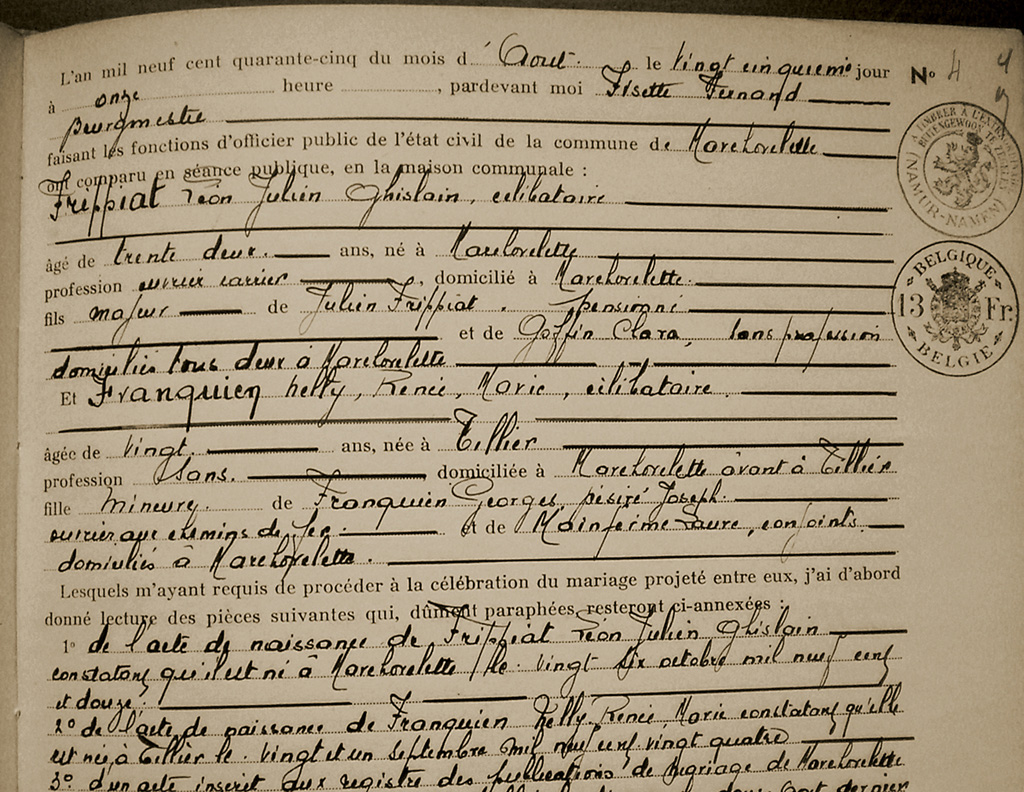 L'an mil neuf cent quarante-cinq du mois d'Août le vingt cinquième jour
N° 4
à onze heure, pardevant moi Fisette Fernand
Bourgmestre
faisant les fonctions d'officier public de l'état civil de la commune de Marchovelette
ont comparu en séance publique, en la maison communale :
Frippiat Léon Julien Ghislain, célibataire
âgé de trente deux ans, né à Marchovelette
profession ouvrier carrier, domicilié à Marchovelette.
fils majeur de Julien Frippiat. pensionné
et de Goffin Clara, sans profession
domiciliés tous deux à Marchovelette
Et Franquien Nelly, Renée, Marie, célibataire.
âgée de vingt. ans, née à Tillier
profession Sans. domiciliée à Marchovelette avant à Tillier
fille mineure. de Franquien Georges, Désiré Joseph.
ouvrier aux chemins de fer. et de Mainferme Laure, conjoints
domiciliés à Marchovelette.
Lesquels m'ayant requis de procéder à la célébration du mariage projeté entre eux, j'ai d'abord
donné lecture des pièces suivantes qui, dûment paraphées, resteront ci-annexées :
1° de l'acte de naissance de Frippiat Léon Julien Ghislain
constatant qu'il est né à Marchovelette le vingt six octobre mil neuf cent
et douze.
2° de l'acte de naissance de Franquien Nelly, Renée, Marie constatant qu'elle
est née à Tillier le vingt et un septembre mil neuf cent vingt quatre
3° d'un acte inscrit aux registre des publications de mariage de Marchovelette
août dernier
A TIMBRER A L'EXTRAORDINAIRE
NAMUR-NAMEN
BELGIQUE
13 Fr.
BELGIE